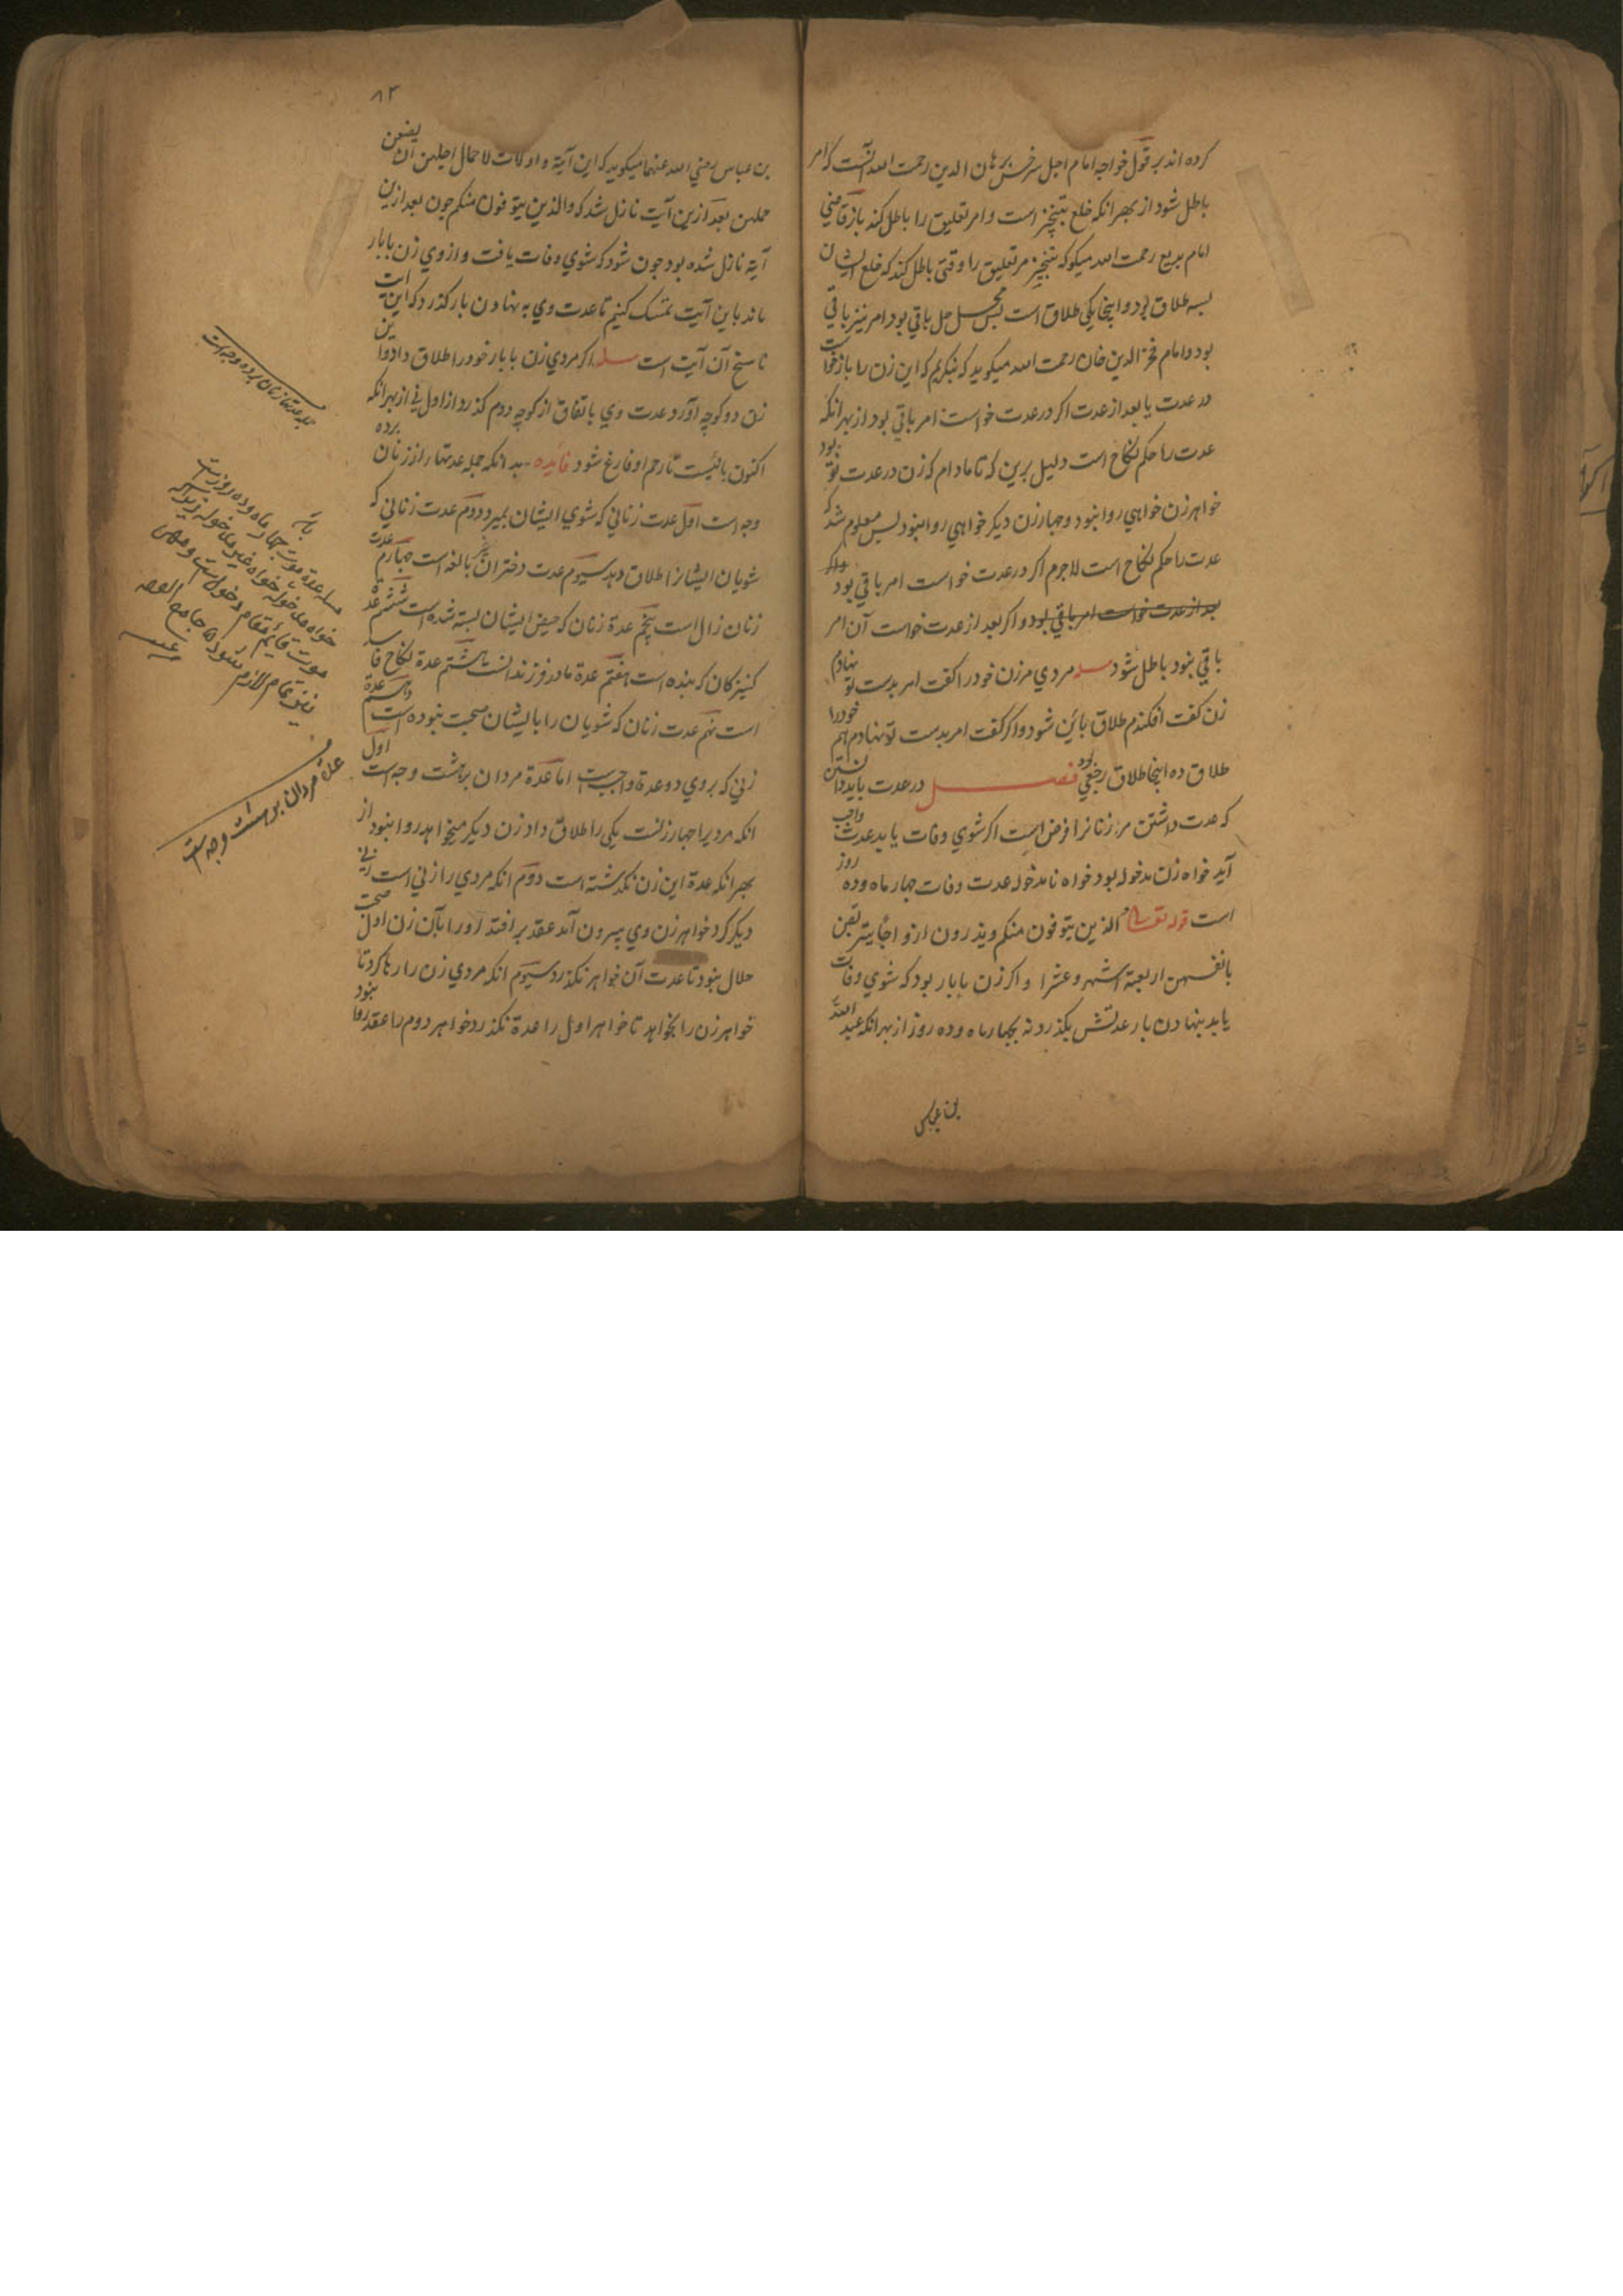 کرده اند بر قول خواجه امام اجل سرخس برهان الدین رحمت الله آنست که امر
باطل شود از بهر انکه خلع تنجیز است و امر تعلیق را باطل کند باز قاضی
امام بدیع رحمت الله میکوکه تنجیز مر تعلیق را وقتی باطل کند که خلع ایشان
بسه طلاق بود و اینجا یکی طلاق است پس محل حل باقی بود امر نیز باقی
بود و امام فخر الدین خان رحمت الله میکوید که بنکریم که این زن را باز خواست
در عدت یا بعد از عدت اکر در عدت خواست امر باقی بود از بهر انکه
عدت را حکم نکاح است دلیل برین که تا مادام که زن در عدت تو بود
خواهر زن خواهی روا نبود و چهار زن دیکر خواهی روا نبود پس معلوم شد که
عدت را حکم نکاح است لاجرم اکر در عدت خواست امر باقی بود واکر
بعد از عدت خواست امر باقی بود و اکر بعد از عدت خواست آن امر
باقی نبود باطل شود مسله مردی مر زن خود را کفت امر بدست تو نهادم
زن کفت افکندم طلاق بائن شود و اکر کفت امر بدست تو نهادم هم خود را
طلاق ده اینجا طلاق رجعی بود فصل در عدت باید دانستن
که عدت داشتن مر زنانرا فرض است اکر شوی وفات یابد عدت واجب
آید خواه زن مدخوله بود خواه نا مدخوله عدت وفات چهار ماه وده روز
است قوله تعالی الذین یتوفون منکم ویذرون ازواجا یتربصن
بانفسهن اربعة اشهر وعشرا و اکر زن با بار بود که شوی وفات
یابد بنهادن بار عدتش بکذرد نه بچهار ماه وده روز از بهر انکه عبد الله
بن عباس
۸۳
بن عباس رضی الله عنهما میکوید که این آیة و اولات الاحمال اجلهن ان یضعن
حملهن بعد ازین آیت نازل شد که والذین یتوفون منکم چون بعد ازین
آیة نازل شده بود چون شود که شوی وفات یافت و از وی زن با بار
ماند باین آیت تمسک کنیم تا عدت وی به نهادن بار کذرد که این آیت
ناسخ آن آیت است مسله اکر مردی زن با بار خود را طلاق داد و این
زن دو کوچه آورد عدت وی باتفاق از کوچه دوم کذرد از اول نی از بهر انکه
اکنون بایست تا رحم او فارغ شود فایده بدانکه جمله عدتها از زنان برده
وجه است اول عدت زنانی که شوی ایشان بمیرد دوم عدت زنانی که
شویان ایشانرا طلاق دهد سیوم عدت دختران بالغه است چهارم عدت
زنان زال است پنجم عدة زنان که حیض ایشان بسته شده است ششم عدة
کنیزکان که بنده است هفتم عدة مادر فرزند است هشتم عدة نکاح فاسد
است نهم عدت زنان که شویان را با ایشان صحبت نبوده است دهم عدة
زنی که بروی دو عدة واجبست اما عدة مردان بر هشت وجه است اول
انکه مردیرا چهار زنست یکی را طلاق داد زن دیکر میخواهد روا نبود از
بهر انکه عدة این زن نکذشته است دوم انکه مردی را زنی است زنی
دیکر کرد خواهر زن وی بیرون آمد عقد بر افتد اورا بآن زن اول صحبت
حلال نبود تا عدت آن خواهر نکذرد سیوم انکه مردی زن را رها کرد تا
خواهر زن را بخواهد تا خواهر اول را عدة نکذرد خواهر دوم را عقد روا نبود
جمله عدتها زنان برده وجه است
مسله عدة موت چهار ماه وده روز است
خواه مدخوله خواه غیر مدخوله زیراکه
موت قائم مقام دخول است
عدة مردان بر هشت وجه است